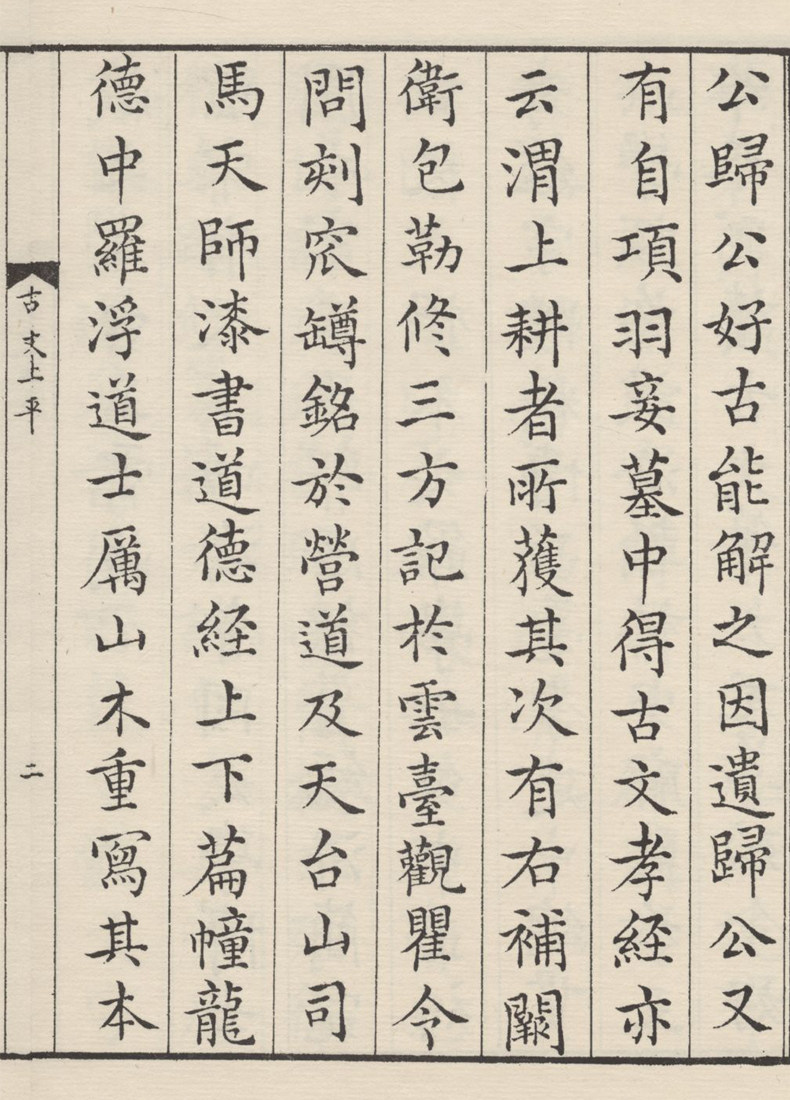 公歸公好古能解之因遺歸公又
有自項羽妾墓中得古文孝経亦
云渭上耕者所獲其次有右補闕
衛包勒修三方記於雲臺觀瞿令
問刻窊罇銘於營道及天台山司
馬天師漆書道德経上下篇幢龍
德中羅浮道士厲山木重寫其本
古文上平
二